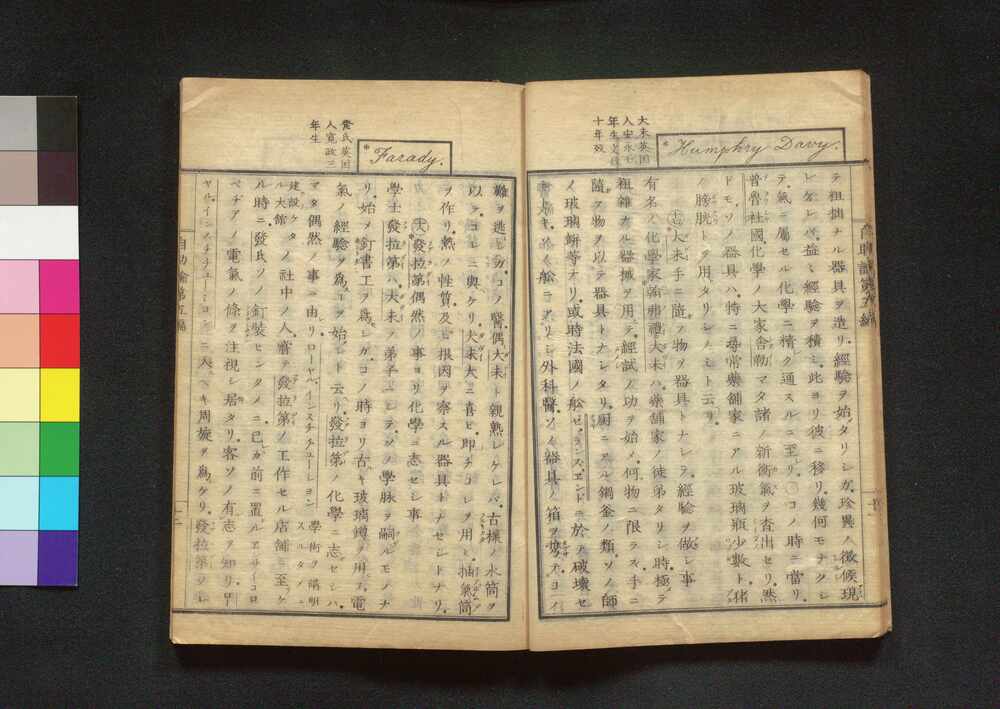 自助論第五編
Humphry Davy.
大未英国
テ粗拙ナル器具ヲ造リ經驗ヲ始メタリシガ珍異ノ徴候現
レケレバ益々經驗ヲ積ミ此ヨリ彼ニ移リ幾何モナクシ
テ氣ニ屬セル化學ニ精ク通スルニ至レリ〇コノ時ニ當リ
普魯社國化學ノ大家舎勒マタ諸ノ新術氣ヲ査出セリ然
ドモソノ器具ハ特ニ尋常藥舗家ニアル玻璃瓶少數ト猪
ノ膀胱トヲ用タリシノミト云リ
大未手ニ隨フ物ヲ器具トナシテ經驗ヲ做シ事
有名ノ化學家大未ハ藥舗家ノ徒弟タリシ時極テ
粗雜ナル器械ヲ用テ經試ノ功ヲ始メ何物ニ限ラズ手ニ
隨フ物ヲ以テ器具トナシタリ厨ニアル鍋釜ノ類ソノ師
ノ玻璃缾等ナリ或時法國ノ舩ゼランズエンドニ於テ破壊セ
舩ニアリシ外科醫ソノ器具ノ箱ヲ
Farady.
發氏英国
人寛政三
年生
難ヲ逃シガコノ醫偶大未ト親熟シケレバ古樣ノ水筒ヲ
以テコレニ與ケリ大未大ニ喜ビ即チコレヲ用ヒ抽氣筒
ヲ作リ熱ノ性質及ビ根因ヲ察スル器具トナセシトナリ
發拉第偶然ノ事ヨリ化學ニ志セシ事
學士發拉第ハ大未ノ弟子ニシテソノ學脉ヲ嗣ルモノナ
リ始メ釘書工ヲ爲シガコノ時ヨリ古キ玻璃罇ヲ用テ電
氣ノ經驗ヲ爲コヲ始シト云リ發拉第ノ化學ニ志セシハ
マタ偶然ノ事ニ由リローヤルインスチチューション 學術ヲ講明スルタメニ
建設ケタル大館ノ社中ノ人嘗テ發拉第ノ工作セル店舗ニ至ケ
ル時ニ發氏ソノ釘裝センタメニ己ガ前ニ置ルエンサイコロ
ペヂアノ電氣ノ條ヲ注視シ居タリ客ソノ有志ヲ知リロー
ヤルインスチチューションニ入ベキ周旋ヲ爲ケリ發拉第ヲシ
自助論第五編